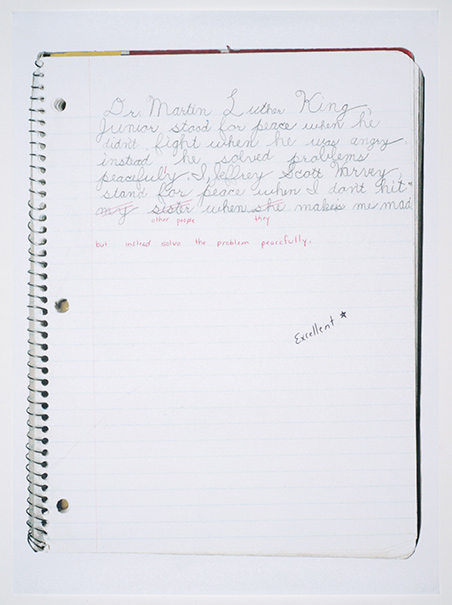 Dr. Martin Luther King,
Junior stood for peace when he
didn't fight when he was angry.
instead he solved problems
peacefuly. I, Jeffrey Scott
stand for peace when I don't hit
my sister when she makes me mad
other people they
but instead solve the problem peacefully.
Excellent ★